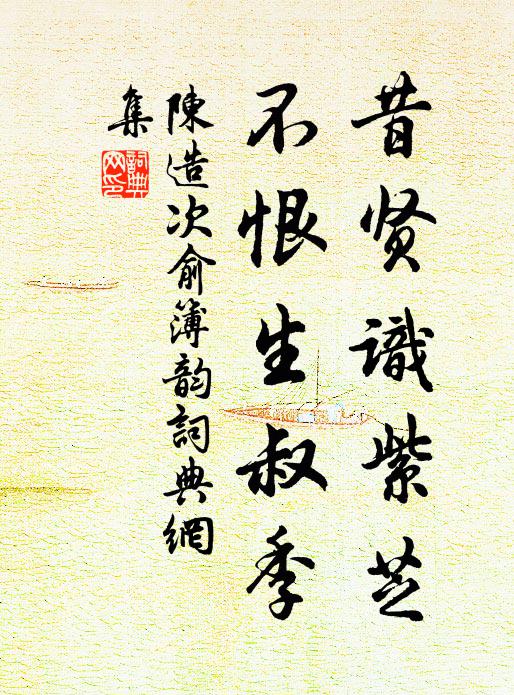 昔贤識紫芝
不恨生叔季
陳造次俞簿韵詞典網
集
詞典网印